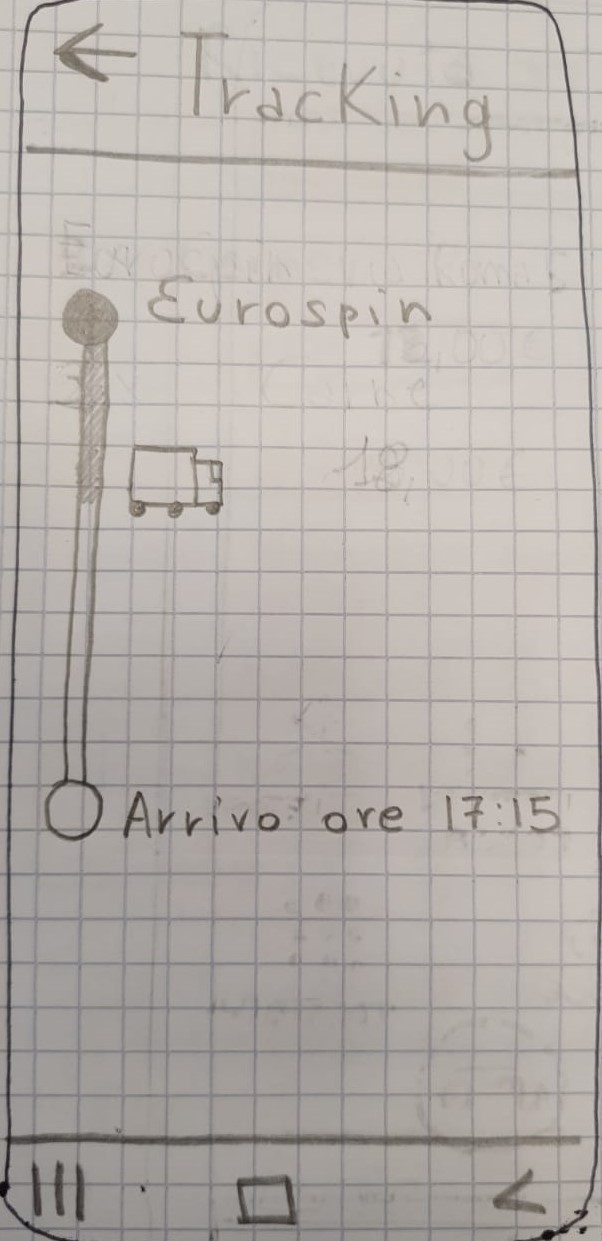 Tracking
Eurospin
Arrivo ore 17:15